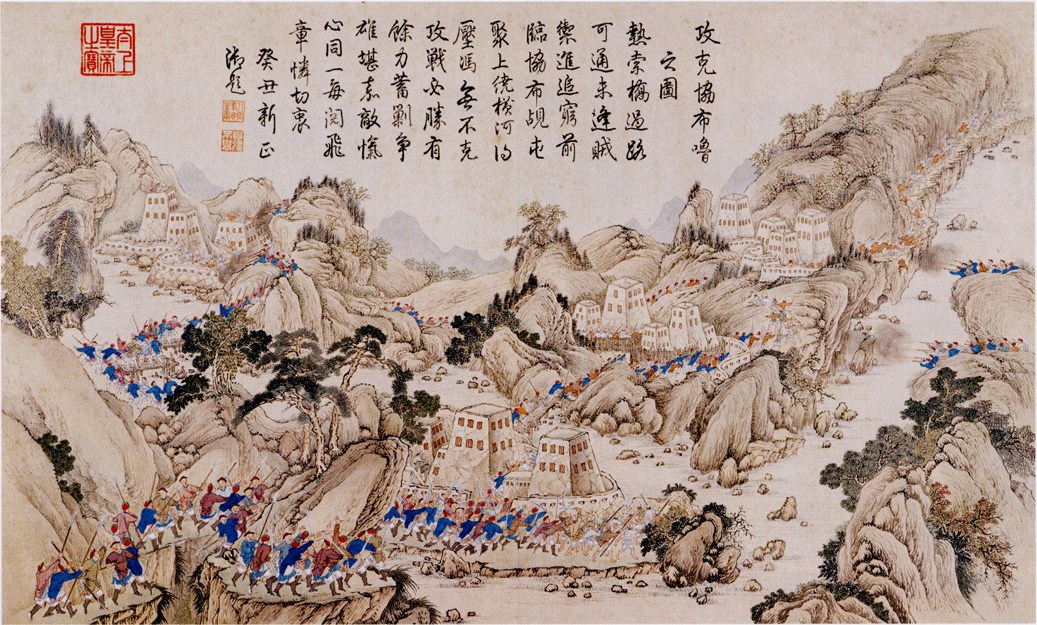 攻克協布嚕
之圖
熱索橋過路
可通未逢賊
禦進追窮前
臨協布覘屯
聚上繞橫河得
壓馮無不克
攻戰必勝有
餘力蓄剿爭
雄堪嘉敵愾
心同一每閱飛
章憐切衷
癸丑新正
御題
太上皇帝之寶